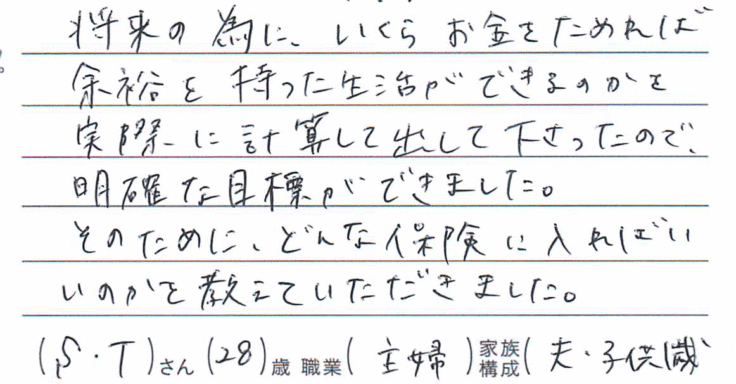 将来の為に、いくらお金をためれば
余裕を持った生活ができるのかを
実際に計算して出して下さったので、
明確な目標ができました。
そのために、どんな保険に入ればい
いのかを教えていただきました。
(S・T)さん(28)歳 職業(主婦)家族構成(夫・子供1歳